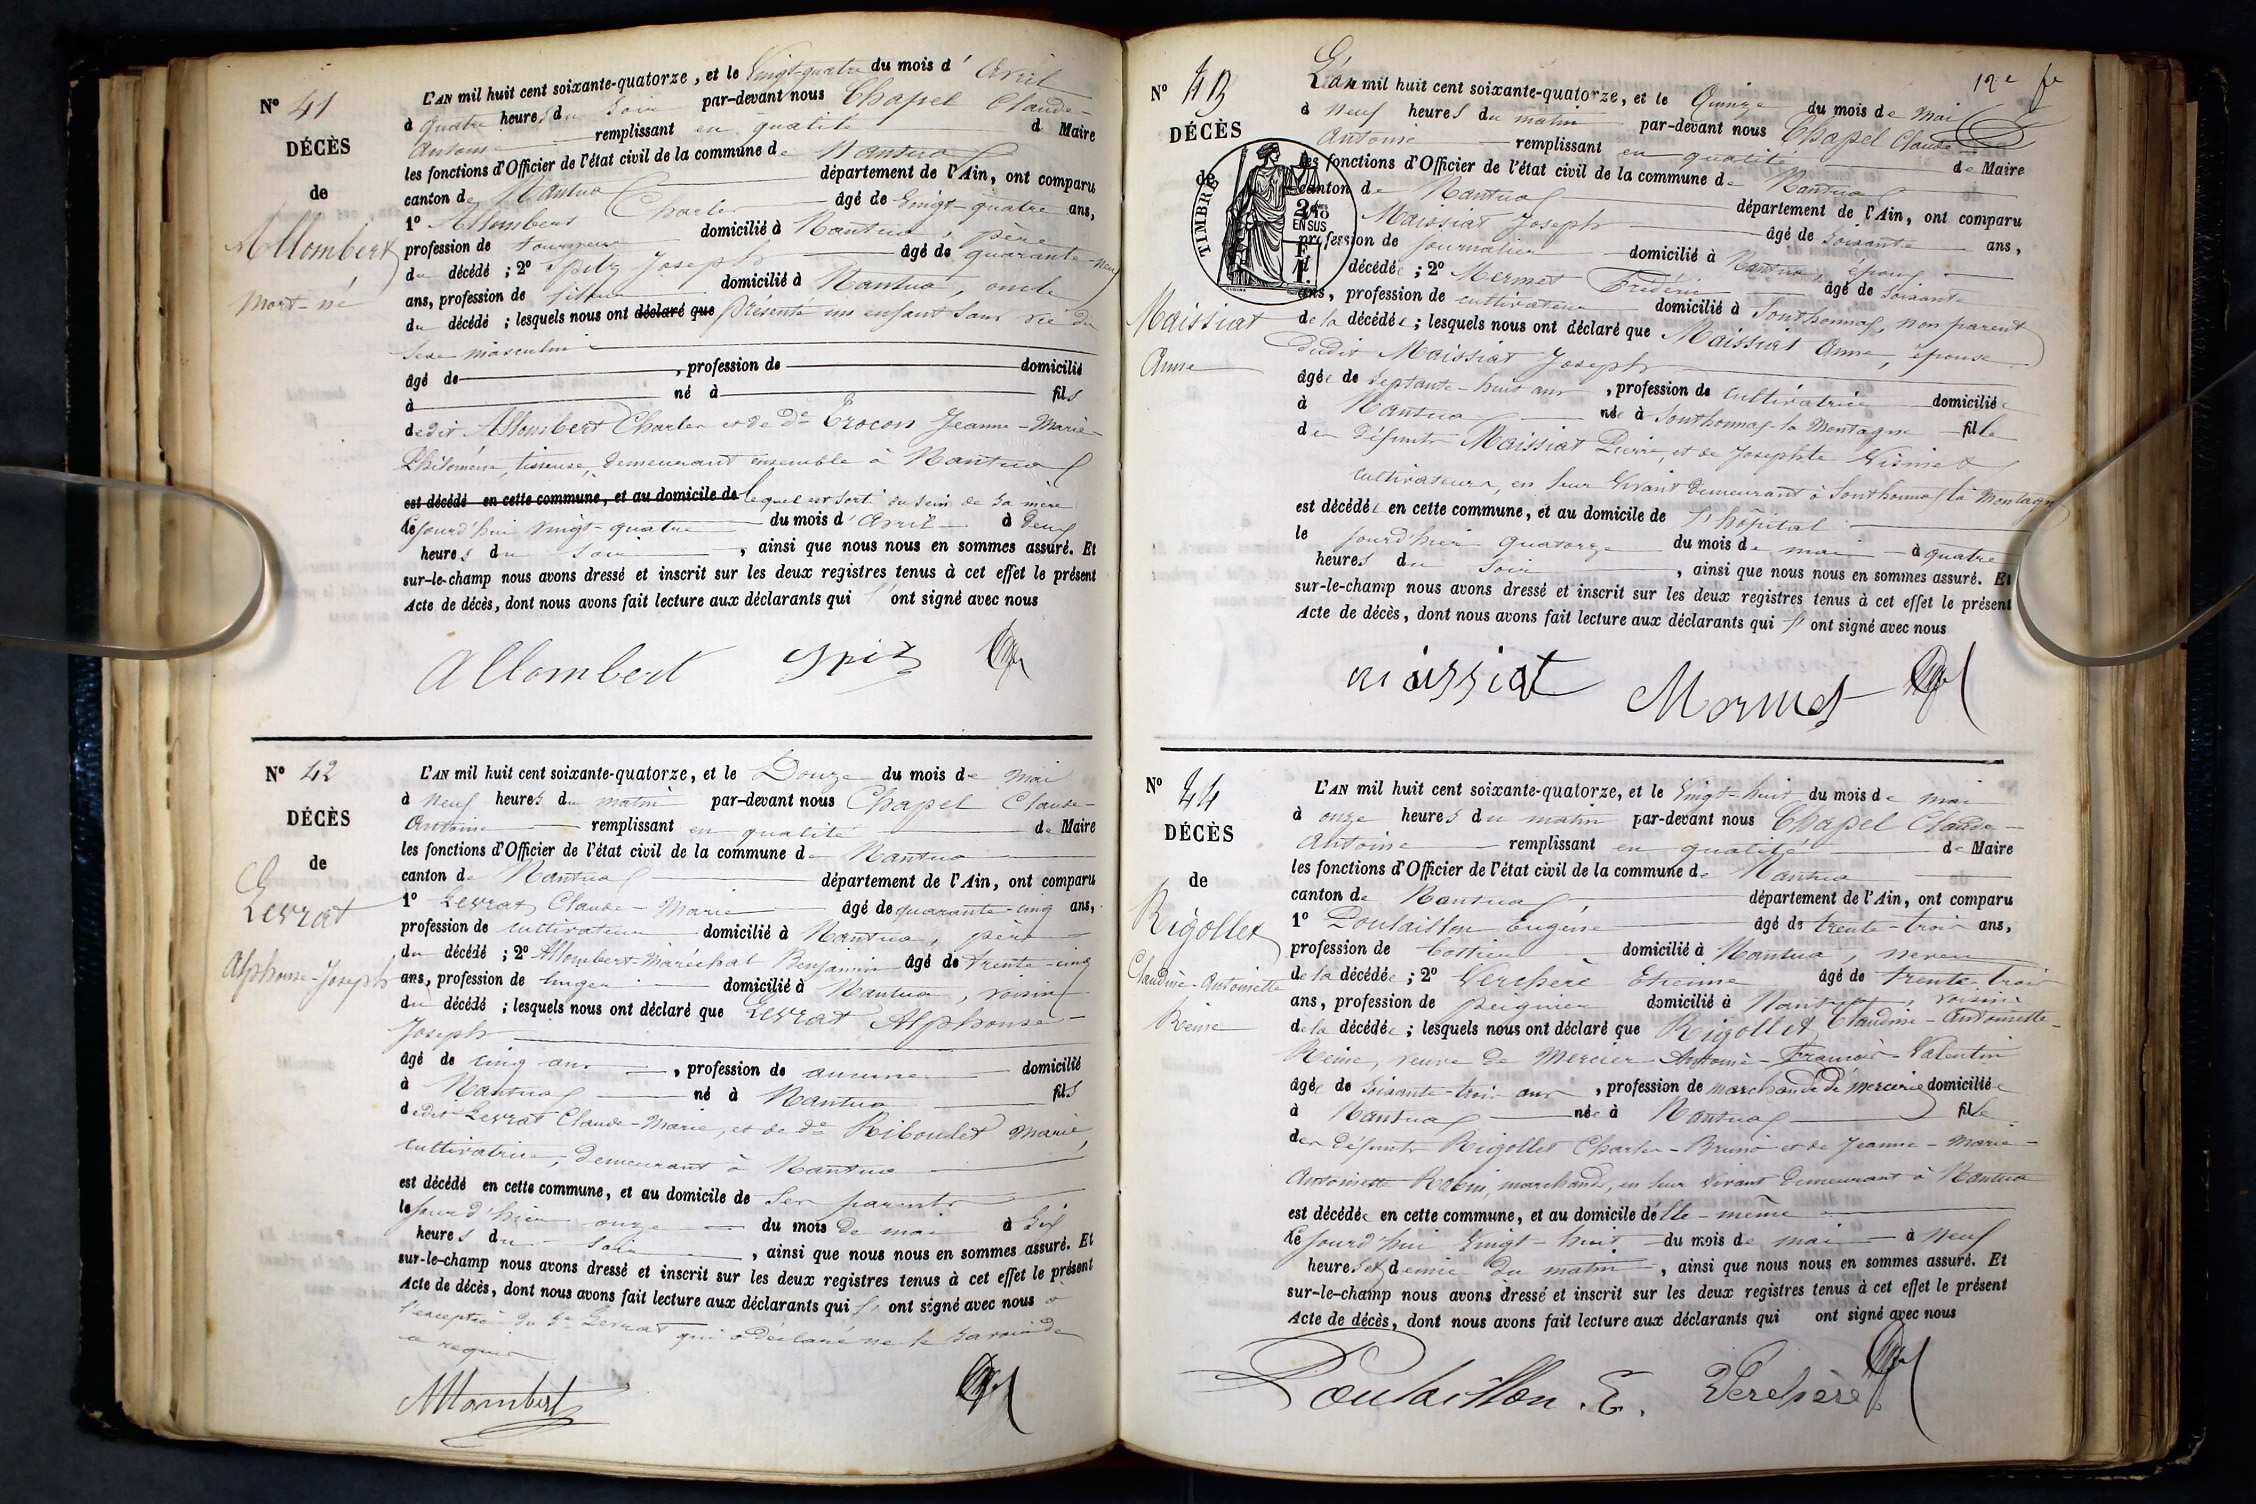 N° 41
DÉCÈS
de
Allombert
Mort-né
L'AN mil huit cent soixante-quatorze, et le Vingt-quatre du mois d'Avril
à quatre heures du soir par-devant nous Chapel Claude-
Antoine remplissant en qualité de Maire
les fonctions d'Officier de l'état civil de la commune de Nantua
canton de Nantua département de l'Ain, ont comparu
1° Allombert Charles âgé de Vingt-quatre ans,
profession de tourneur domicilié à Nantua, père
du décédé ; 2° Spitz Joseph âgé de quarante-neuf
ans, profession de domicilié à Nantua, oncle
du décédé ; lesquels nous ont déclaré que présenté un enfant sans vie du
sexe masculin
âgé de , profession de domicilié
à né à fils
dudit Allombert Charles et de De Crocon Jeanne-Marie-
Philomène, tisseuse, demeurant ensemble à Nantua
est décédé en cette commune, et au domicile de lequel est sorti du sein de sa mère
le jourd'hui vingt-quatre du mois d'Avril à deux
heures du soir , ainsi que nous nous en sommes assuré. Et
sur-le-champ nous avons dressé et inscrit sur les deux registres tenus à cet effet le présent
Acte de décès, dont nous avons fait lecture aux déclarants qui ont signé avec nous
Allombert Spitz
N° 42
DÉCÈS
de
Levrat
Alphonse-Joseph
L'AN mil huit cent soixante-quatorze, et le Douze du mois de mai
à neuf heures du matin par-devant nous Chapel Claude-
Antoine remplissant en qualité de Maire
les fonctions d'Officier de l'état civil de la commune de Nantua
canton de Nantua département de l'Ain, ont comparu
1° Levrat Claude-Marie âgé de quarante-cinq ans,
profession de cultivateur domicilié à Nantua, père
du décédé ; 2° Allombert-Maréchal Benjamin âgé de trente-cinq
ans, profession de domicilié à Nantua, voisin
du décédé ; lesquels nous ont déclaré que Levrat Alphonse-
Joseph
âgé de cinq ans , profession de aucune domicilié
à Nantua né à Nantua fils
dudit Levrat Claude-Marie, et de De Riboulet Marie,
cultivatrice, demeurant à Nantua
est décédé en cette commune, et au domicile de ses parents
le jourd'hier onze du mois de mai à six
heures du soir , ainsi que nous nous en sommes assuré. Et
sur-le-champ nous avons dressé et inscrit sur les deux registres tenus à cet effet le présent
Acte de décès, dont nous avons fait lecture aux déclarants qui ont signé avec nous à
l'exception du Sr Levrat qui a déclaré ne le savoir de
ce requis
Allombert
12e fe
N° 43
DÉCÈS
de
TIMBRE
2/10 EN SUS
Maissiat
Anne
L'an mil huit cent soixante-quatorze, et le Quinze du mois de mai
à neuf heures du matin par-devant nous Chapel Claude-
Antoine remplissant en qualité de Maire
les fonctions d'Officier de l'état civil de la commune de Nantua
canton de Nantua département de l'Ain, ont comparu
Maissiat Joseph âgé de soixante ans,
profession de journalier domicilié à Nantua, époux
décédée ; 2° Mermet Frédéric âgé de soixante
ans, profession de cultivateur domicilié à Sonthonnax, non parent
de la décédée ; lesquels nous ont déclaré que Maissiat Anne, épouse
dudit Maissiat Joseph
âgée de septante-huit ans , profession de cultivatrice domiciliée
à Nantua née à Sonthonnax-la-Montagne fille
des défunts Maissiat Pierre, et de Josephte
cultivateurs, en leur vivant demeurant à Sonthonnax la Montagne
est décédée en cette commune, et au domicile de l'hôpital
le jourd'hier quatorze du mois de mai à quatre
heures du soir , ainsi que nous nous en sommes assuré. Et
sur-le-champ nous avons dressé et inscrit sur les deux registres tenus à cet effet le présent
Acte de décès, dont nous avons fait lecture aux déclarants qui ont signé avec nous
Maissiat Mermet
N° 44
DÉCÈS
de
Rigollet
Claudine-Antoinette
Reine
L'AN mil huit cent soixante-quatorze, et le Vingt-huit du mois de mai
à onze heures du matin par-devant nous Chapel Claude-
Antoine remplissant en qualité de Maire
les fonctions d'Officier de l'état civil de la commune de Nantua
canton de Nantua département de l'Ain, ont comparu
1° Poulaillon Eugène âgé de trente-trois ans,
profession de domicilié à Nantua, neveu
de la décédée ; 2° Verchère Etienne âgé de trente-trois
ans, profession de peignier domicilié à Nantua, voisin
de la décédée ; lesquels nous ont déclaré que Rigollet Claudine-Antoinette-
Reine, veuve de Mercier Antoine-François-Valentin
âgée de soixante-trois ans , profession de marchande de mercerie domiciliée
à Nantua née à Nantua fille
des défunts Rigollet Charles-Bruno et de Jeanne-Marie-
Antoinette Robin, marchands, en leur vivant demeurant à Nantua
est décédée en cette commune, et au domicile d'elle-même
le jourd'hui Vingt-huit du mois de mai à neuf
heures et demie du matin , ainsi que nous nous en sommes assuré. Et
sur-le-champ nous avons dressé et inscrit sur les deux registres tenus à cet effet le présent
Acte de décès, dont nous avons fait lecture aux déclarants qui ont signé avec nous
Poulaillon . E. Verchère